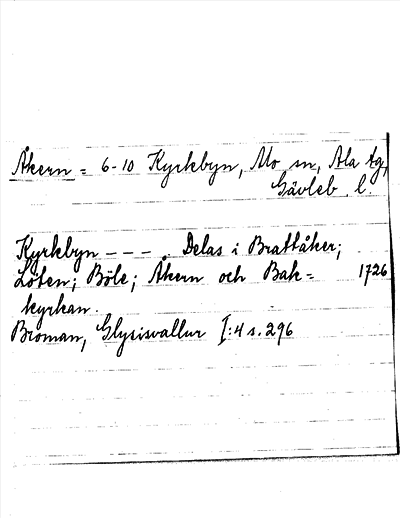 Åkern = 6-10 Kyrkbyn, Mo sn, Ala tg,
Gävleb. l.
Kyrkbyn --- . Delas i Brattåker;
Löten; Böle; Åkern och Bak= 1726
kyrkan.
Broman, Glysisvallur I:4 s. 296